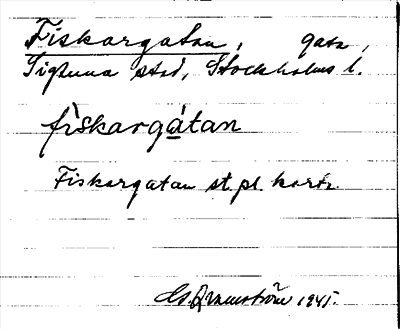 Fiskargatan, gata,
Sigtuna stad, Stockholms l.
fìskargátan
Fiskargatan st.pl. kart.
1945.